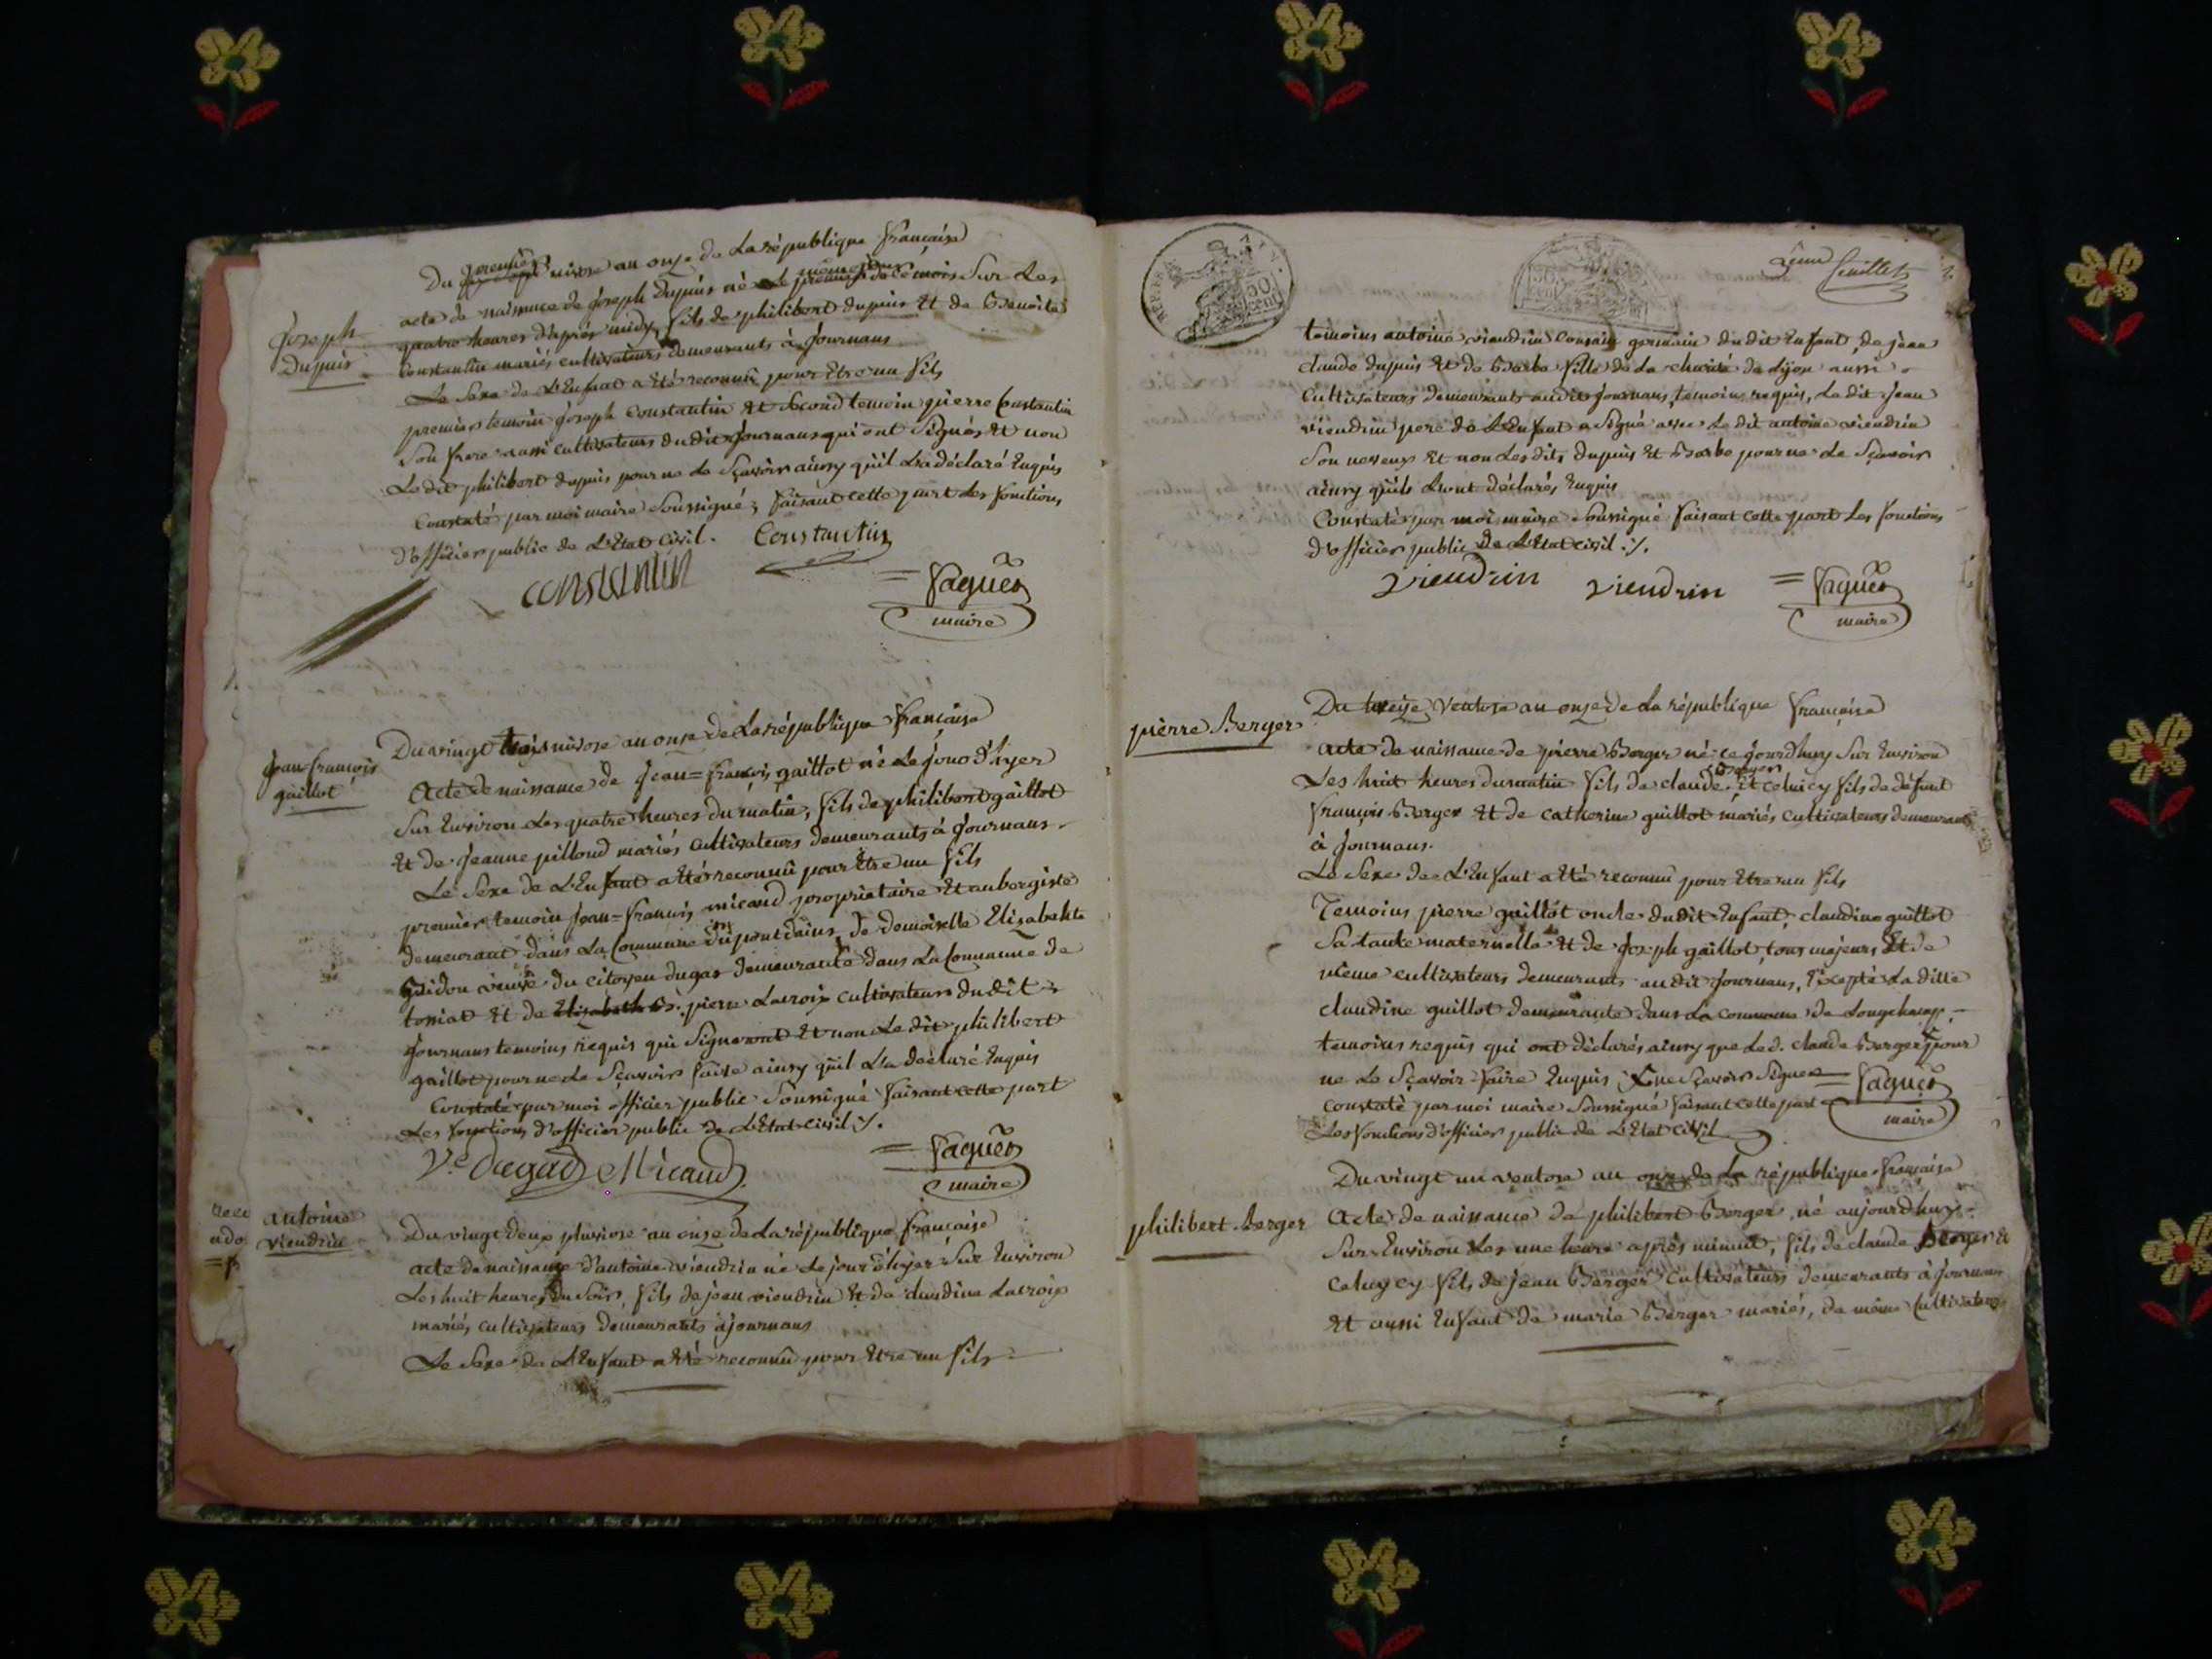 Du premier nivose an onze de La république française
acte de naissance de Joseph Dupuis né Le même jour de ce mois Sur Les
Joseph
Dupuis
quatre heures d'après midy, fils de philibert dupuis Et de Benoite
Constantin mariés cultivateurs demeurants à Journans
Le Sexe de L'Enfant a Eté reconnû pour Etre un fils
premier temoin Joseph Constantin Et Second temoin pierre Constantin
Son frere aussi cultivateurs dudit Journans qui ont Signés Et non
Le dit philibert dupuis pour ne Le Sçavoir ainsy qu'il L'a déclaré Enquis
Constaté par moi maire Soussigné, faisant cette part Les fonctions
d'officier public de L'Etat Civil. Constantin
constantin
= Vaguer
maire
Du vingt trois nivose an onze de La république française
Jean-françois
gaillot
Acte de naissance de Jean=françois gaillot né Le Jour d'hyer
Sur Environ Les quatre heures du matin, fils de philibert gaillot
Et de Jeanne pillond mariés cultivateurs demeurants à Journans.
Le Sexe de L'Enfant a Eté reconnû pour Etre un fils
premier temoin Jean=francois micaud propriataire Et aubergiste
demeurant dans La Commune du pont dains, de demoiselle Elizabehte
Guidon veuve du citoyen dugas demeurante dans La Commune de
tossiat Et de Elizabeth pierre Lacroix cultivateurs dudit
Journans temoins requis qui Signeront Et non Le dit philibert
gaillot pour ne Le Sçavoir faire ainsy qu'il L'a declaré Enquis
Constaté par moi officier public Soussigné faisant cette part
Les fonctions d'officier public de L'Etat civil ./.
Ve dugas Micaud
= Vaguer
maire
antoine
viendrin
Du vingt deux pluviose an onze de La république française
acte de naissance d'antoine viendrin né Le jour d'hyer Sur Environ
Les huit heures du Soir, fils de jean viendrin Et de claudine Lacroix
mariés, cultivateurs demeurants à journans
Le Sexe de L'Enfant a Eté reconnû pour Etre un fils
REP. FRA.
50
cent
50
cent
2eme feuillet
temoins antoine viendrin Cousin germain du dit Enfant, de jean
claude dupuis Et de Barbe fille de La charité de Lijon aussi
Cultivateurs demeurants audit Journans, temoins requis, Le dit Jean
viendrin pere de L'Enfant a Signé avec Le dit antoine viendrin
Son neveux Et non Les dits dupuis Et Barbe pour ne Le Sçavoir
ainsy qu'ils L'ont déclarés Enquis
Constaté par moi maire Soussigné faisant cette part Les fonctions
d'officier public de L'Etat civil ./.
viendrin viendrin = Vaguer
maire
pierre Berger
Du treize ventose an onze de La république française
Acte de naissance de pierre Berger né ce jourd'huy Sur Environ
Les huit heures du matin fils de claude Berger Et céluicy fils de défunt
françois Berger Et de catherine guillot mariés cultivateurs demeurants
à Journans.
Le Sexe de L'Enfant a Eté reconnû pour Etre un fils
Temoins pierre guillot oncle du dit Enfant, claudine guillot
Sa tante maternelle Et de Joseph gaillot, tous majeurs Et de
même cultivateurs demeurants au dit Journans, Excepté La ditte
claudine guillot demeurante dans La commune de Longchamp,
temoins requis qui ont déclarés ainsy que Led. claude Berger pour
ne Le Sçavoir faire Enquis ne Sçavoir Signer = Vaguer
constaté par moi maire Soussigné faisant cette part
maire
Les fonctions d'officier public de L'Etat civil
Du vingt un ventose an onze de La république française
philibert Berger
Acte de naissance de philibert Berger né aujourdhuy
Sur Environ Les une heure après minuit, fils de claude Berger Et
celuycy fils de jean Berger Cultivateurs demeurants à Journans
Et aussi Enfant de marie Berger mariés, de même Cultivateurs